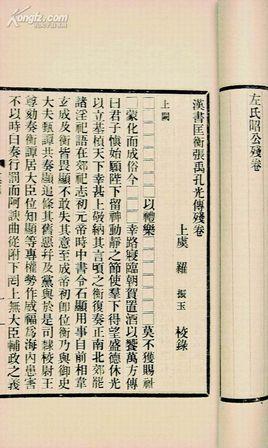 左氏昭公殘卷
漢書匡衡張禹孔光傳殘卷
上虞 羅 振玉 校錄
上闕
□□□□□□□以禮樂□□□□□莫不獲賜祉
□蒙化而成俗今□□□□幸路寢臨朝賀置酒以饗萬方傳
曰君子愼始願陛下留神動靜之節使羣下得望盛德休光
以立基楨天下幸甚上敬納其言頃之衡復奏正南北郊罷
諸淫祀語在郊祀志初元帝時中書令石顯用事自前相韋
玄成及衡皆畏顯不敢失其意至成帝初卽位衡乃與御史
大夫甄譚共奏顯追條其舊惡幷及黨與於是司隸校尉王
尊劾奏衡譚居大臣位知顯等專權勢作威福爲海內患害
不以時白奏行罰而阿諛曲從附下罔上無大臣輔政之義
Kongfz.com